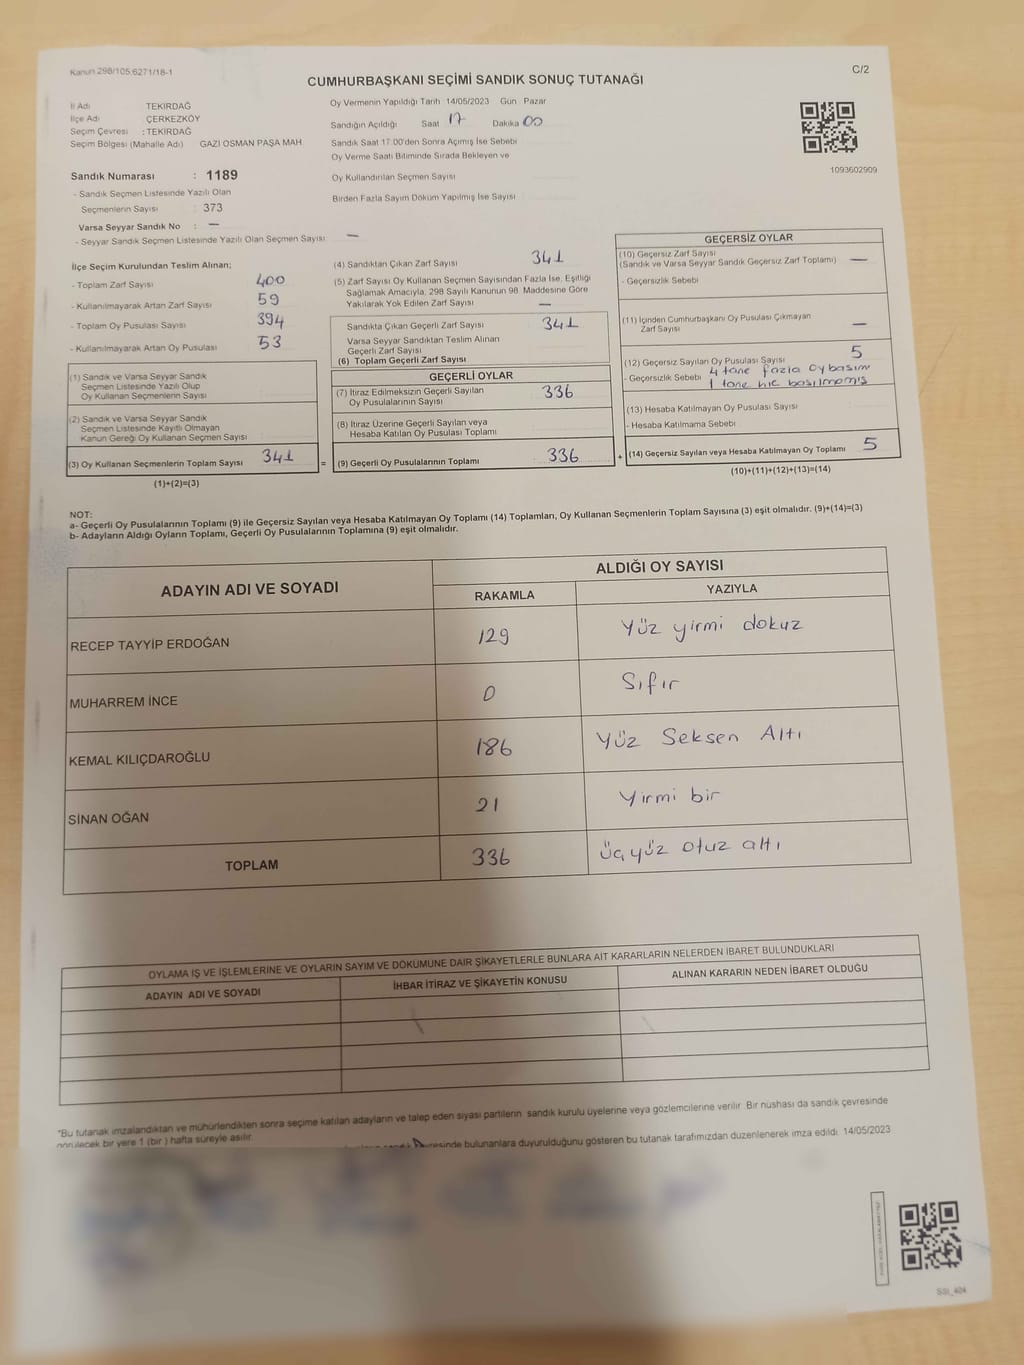 Kanun 298/105,6271/18-1
C/2
CUMHURBAŞKANI SEÇİMİ SANDIK SONUÇ TUTANAĞI
İl Adı TEKİRDAĞ
İlçe Adı ÇERKEZKÖY
Seçim Çevresi : TEKİRDAĞ
Seçim Bölgesi (Mahalle Adı) GAZİ OSMAN PAŞA MAH.
Oy Vermenin Yapıldığı Tarih 14/05/2023 Gün Pazar
Sandığın Açıldığı Saat 17 Dakika 00
Sandık Saat 17.00'den Sonra Açılmış İse Sebebi
Oy Verme Saati Bitiminde Sırada Bekleyen ve
Oy Kullandırılan Seçmen Sayısı
Birden Fazla Sayım Döküm Yapılmış İse Sayısı
1093602909
Sandık Numarası : 1189
- Sandık Seçmen Listesinde Yazılı Olan
Seçmenlerin Sayısı 373
Varsa Seyyar Sandık No : —
- Seyyar Sandık Seçmen Listesinde Yazılı Olan Seçmen Sayısı —
İlçe Seçim Kurulundan Teslim Alınan;
- Toplam Zarf Sayısı 400
- Kullanılmayarak Artan Zarf Sayısı 59
- Toplam Oy Pusulası Sayısı 394
- Kullanılmayarak Artan Oy Pusulası 53
(1) Sandık ve Varsa Seyyar Sandık
Seçmen Listesinde Yazılı Olup
Oy Kullanan Seçmenlerin Sayısı
(2) Sandık ve Varsa Seyyar Sandık
Seçmen Listesinde Kayıtlı Olmayan
Kanun Gereği Oy Kullanan Seçmen Sayısı
(3) Oy Kullanan Seçmenlerin Toplam Sayısı 341
(1)+(2)=(3)
(4) Sandıktan Çıkan Zarf Sayısı 341
(5) Zarf Sayısı Oy Kullanan Seçmen Sayısından Fazla İse, Eşitliği
Sağlamak Amacıyla, 298 Sayılı Kanunun 98. Maddesine Göre
Yakılarak Yok Edilen Zarf Sayısı —
Sandıkta Çıkan Geçerli Zarf Sayısı 341
Varsa Seyyar Sandıktan Teslim Alınan
Geçerli Zarf Sayısı
(6) Toplam Geçerli Zarf Sayısı
GEÇERLİ OYLAR
(7) İtiraz Edilmeksizin Geçerli Sayılan
Oy Pusulalarının Sayısı 336
(8) İtiraz Üzerine Geçerli Sayılan veya
Hesaba Katılan Oy Pusulası Toplamı
= (9) Geçerli Oy Pusulalarının Toplamı 336
GEÇERSİZ OYLAR
(10) Geçersiz Zarf Sayısı
(Sandık ve Varsa Seyyar Sandık Geçersiz Zarf Toplamı) —
- Geçersizlik Sebebi
(11) İçinden Cumhurbaşkanı Oy Pusulası Çıkmayan
Zarf Sayısı —
(12) Geçersiz Sayılan Oy Pusulası Sayısı 5
- Geçersizlik Sebebi 4 tane fazla oy basım
1 tane hiç basılmamış
(13) Hesaba Katılmayan Oy Pusulası Sayısı
- Hesaba Katılmama Sebebi
+ (14) Geçersiz Sayılan veya Hesaba Katılmayan Oy Toplamı 5
(10)+(11)+(12)+(13)=(14)
NOT:
a- Geçerli Oy Pusulalarının Toplamı (9) ile Geçersiz Sayılan veya Hesaba Katılmayan Oy Toplamı (14) Toplamları, Oy Kullanan Seçmenlerin Toplam Sayısına (3) eşit olmalıdır. (9)+(14)=(3)
b- Adayların Aldığı Oyların Toplamı, Geçerli Oy Pusulalarının Toplamına (9) eşit olmalıdır.
ADAYIN ADI VE SOYADI
ALDIĞI OY SAYISI
RAKAMLA YAZIYLA
RECEP TAYYİP ERDOĞAN 129 Yüz yirmi dokuz
MUHARREM İNCE 0 Sıfır
KEMAL KILIÇDAROĞLU 186 Yüz Seksen Altı
SİNAN OĞAN 21 Yirmi bir
TOPLAM 336 üçyüz otuz altı
OYLAMA İŞ VE İŞLEMLERİNE VE OYLARIN SAYIM VE DÖKÜMÜNE DAİR ŞİKAYETLERLE BUNLARA AİT KARARLARIN NELERDEN İBARET BULUNDUKLARI
ADAYIN ADI VE SOYADI İHBAR İTİRAZ VE ŞİKAYETİN KONUSU ALINAN KARARIN NEDEN İBARET OLDUĞU
*Bu tutanak imzalandıktan ve mühürlendikten sonra seçime katılan adayların ve talep eden siyasi partilerin sandık kurulu üyelerine veya gözlemcilerine verilir. Bir nüshası da sandık çevresinde
görülecek bir yere 1 (bir) hafta süreyle asılır.
bulunanlara duyurulduğunu gösteren bu tutanak tarafımızdan düzenlenerek imza edildi. 14/05/2023